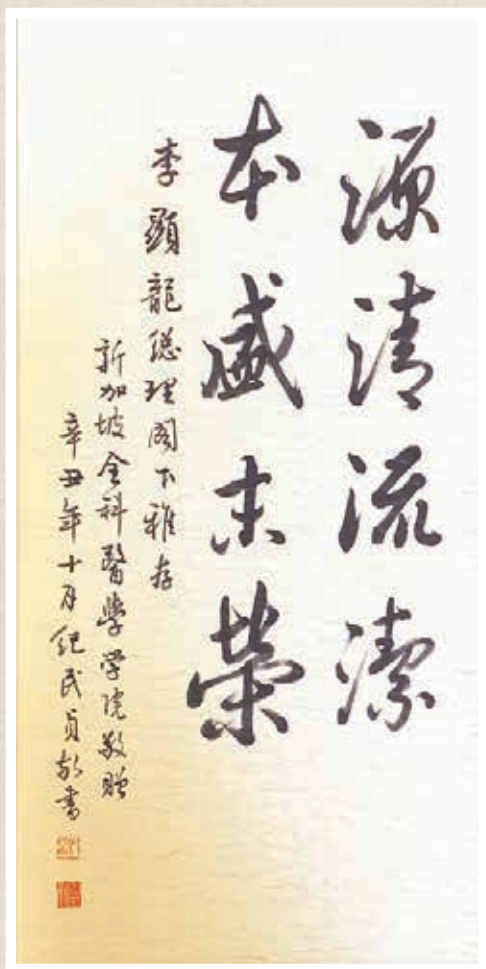 源清流潔
本盛末榮
李顯龍總理閣下雅存
新加坡全科醫學学院敬贈
辛丑年十月紀民貞敬書